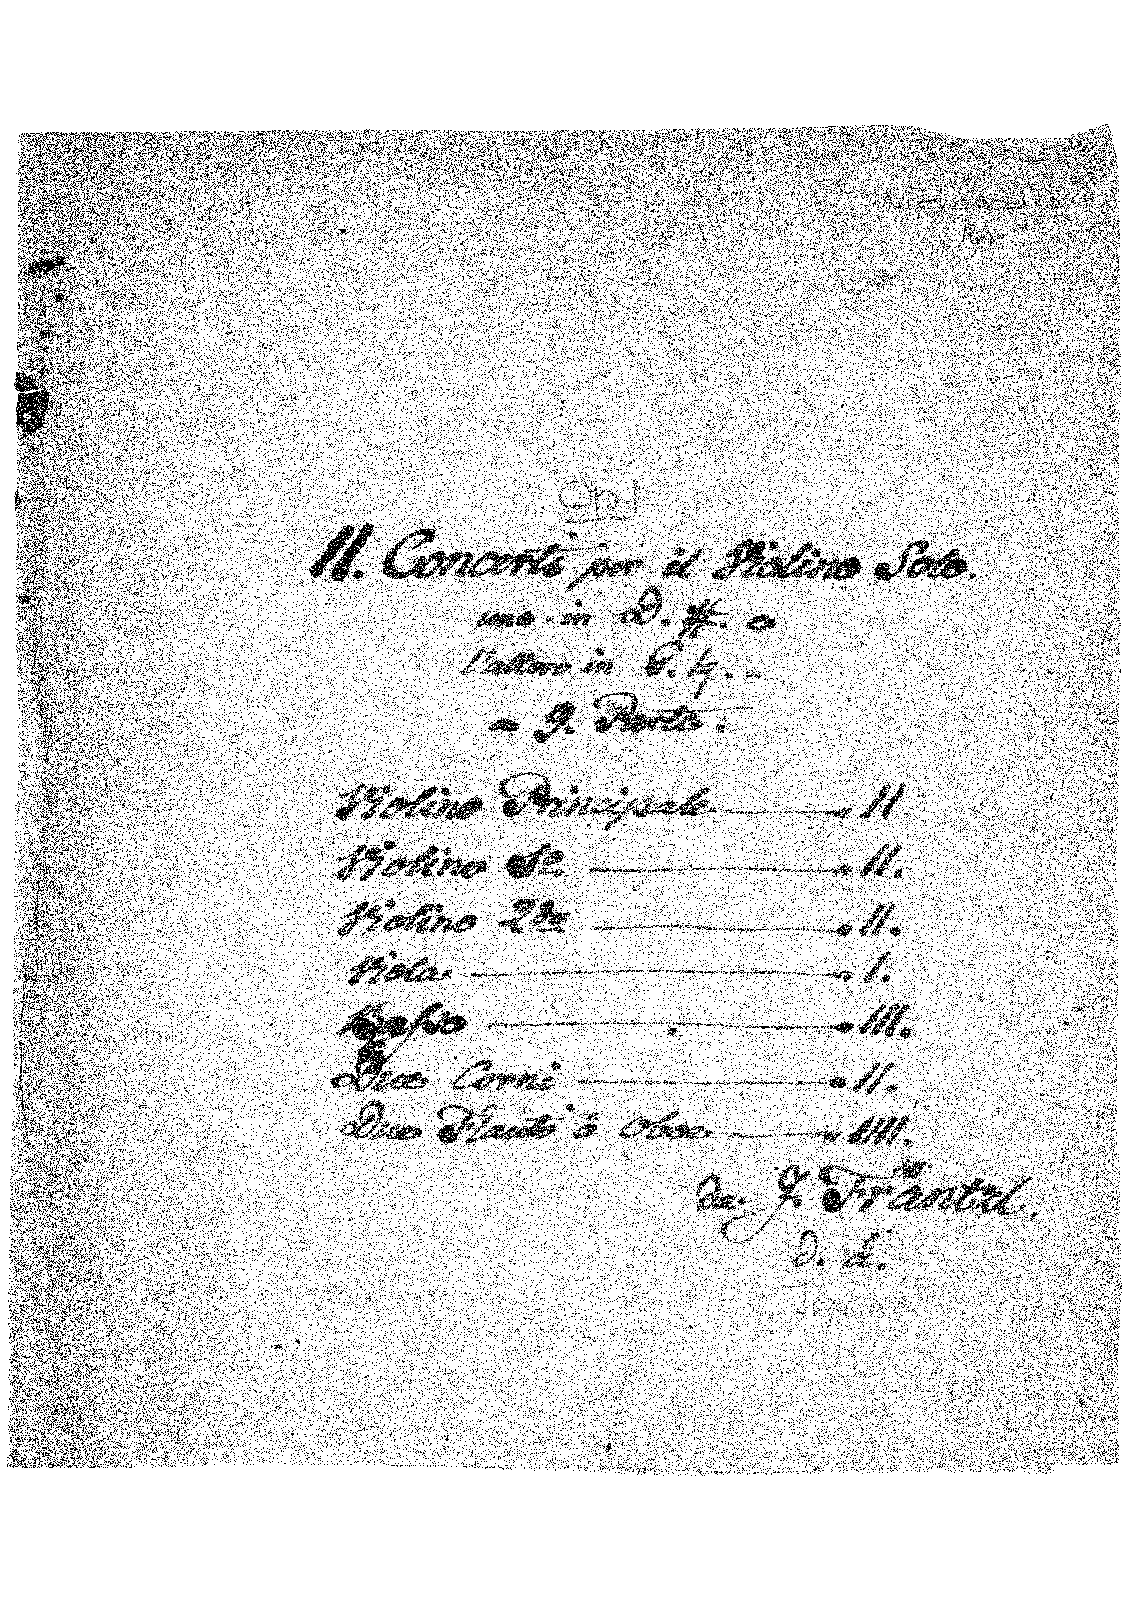 Op. 1
II. Concerti per il Violino Solo.
uno in D. #. o
l'altero in G. ♮.
9. Parti.
Violino Principale II
Violino 1o. II.
Violino 2do II.
Viola. I.
Basso III.
Due Corni II.
Due Flauti ò oboe. IIII.
Da: J. Fräntzl.